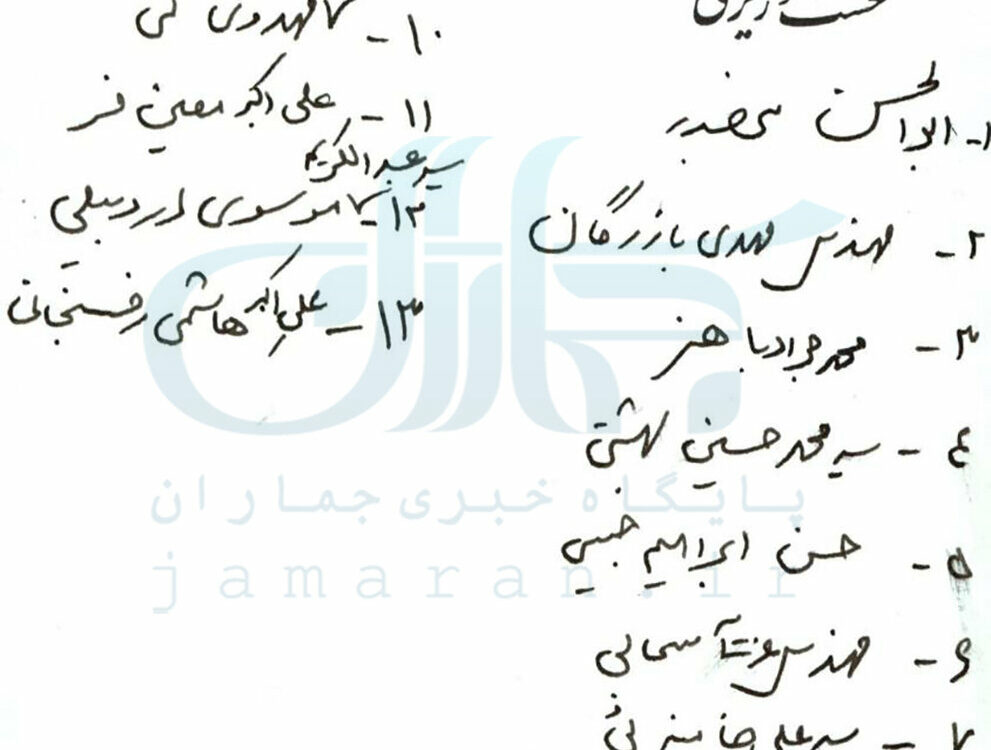 ۱- ابوالحسن بنی صدر
۲- مهندس مهدی بازرگان
۳- محمد جواد باهنر
٤- سید محمد حسینی بهشتی
۵- حسن ابراهیم حبیبی
۶- مهندس عزت‌ا... سحابی
۷- سید علی خامنه‌ئی
۱۰- مهدوی کنی
۱۱- علی اکبر معین فر
سید عبدالکریم
۱۲- موسوی اردبیلی
۱۳- علی اکبر هاشمی رفسنجانی
پایگاه خبری جماران
jamaran.ir